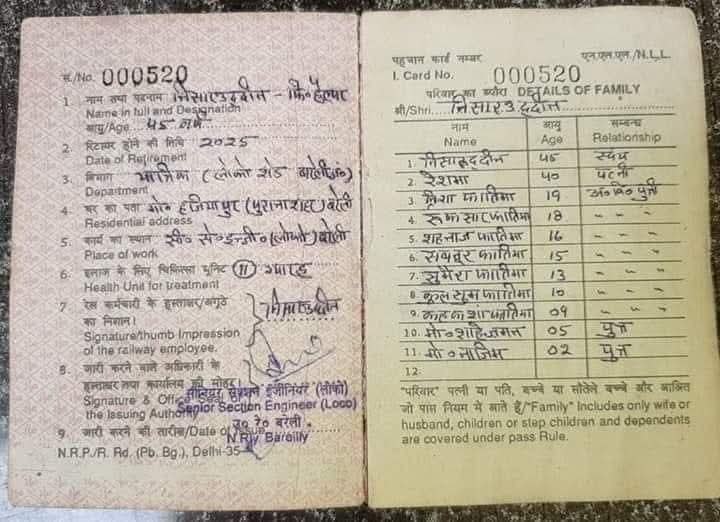 सं./No. 000520
1 नाम तथा पदनाम निसारउद्दीन -
Name in full and Designation
आयु/Age 45 वर्ष
2 रिटायर होने की तिथि 2025
Date of Retirement
3. विभाग यांत्रिक (लोको शेड बरेली)
Department
4 घर का पता मो० हजियापुर (पुराना शहर) बरेली
Residential address
5. कार्य का स्थान सी० से० इन्जी० (लोको) बरेली
Place of work
6 इलाज के लिए चिकित्सा युनिट II
Health Unit for treatment
7 रेल कर्मचारी के हस्ताक्षर/अंगुठे
का निशान।
Signature/thumb Impression
of the railway employee.
8. जारी करने वाले अधिकारी के
हस्ताक्षर तथा कार्यालय की मोहर
Signature &
the Issuing
सीनियर सेक्शन इंजीनियर (लोको)
Senior Section Engineer (Loco)
उ० रे० बरेली.
N.Rly. Bareilly
9. जारी करने की तारीख/Date of
N.R.P./R. Rd. (Pb. Bg.), Delhi-35
पहचान कार्ड नम्बर एन.एल.एल./N.L.L.
I. Card No. 000520
परिवार का ब्यौरा DETAILS OF FAMILY
श्री/Shri. निसारउद्दीन
नाम आयु सम्बन्ध
Name Age Relationship
1. निसारूद्दीन 45 स्वयं
2. रेशमा 40 पत्नी
3. फातिमा 19 अ० वि० पुत्री
4. रूकसार फातिमा 18 " " "
5. शहनाज फातिमा 16 " " "
6. फातिमा 15 " " "
7. सुमेरा फातिमा 13 " " "
8. कुलसुम फातिमा 10 " " "
9. कहकाशा फातिमा 09 " " "
10. मो० शाहेजमन 05 पुत्र
11. मो० नाजिम 02 पुत्र
12.
"परिवार" पत्नी या पति, बच्चे या सौतेले बच्चे और आश्रित
जो पास नियम में आते है/"Family" Includes only wife or
husband, children or step children and dependents
are covered under pass Rule.